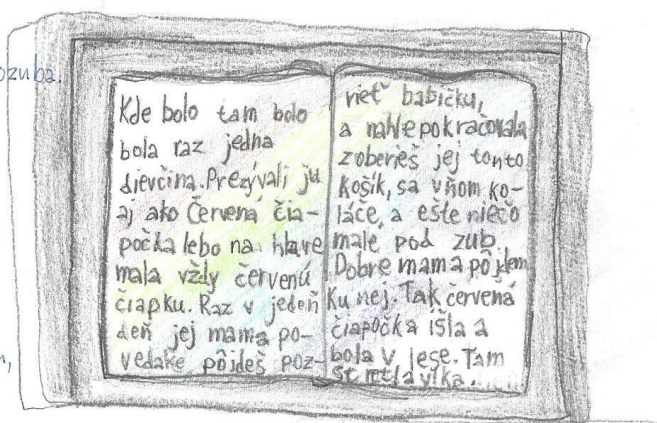 ozuba.
Kde bolo tam bolo
bola raz jedna
dievčina. Prezývali ju
aj ako Červená čia-
počka lebo na hlave
mala vždy červenú
čiapku. Raz v jedeň
deň jej mama po-
vedake pôjdeš poz-
rieť babičku,
a náhle pokračovala
zoberieš jej tonto
košík, sa vňom ko-
láče, a ešte niečo
malé pod zub.
Dobre mama pôjdem
ku nej. Tak červená
čiapočka išla a
bola v lese. Tam
stretla vlka.